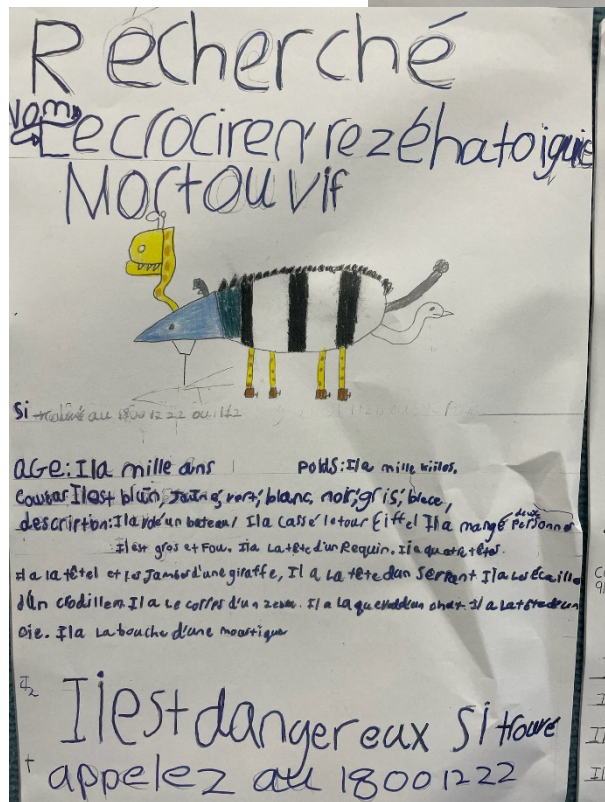 Recherché
Nom
Le crociren'rezéhatoiguie
Mort ou vif
Si au 1800 12 22 ou
AGE: Il a mille ans POIDS: Il a mille kiilos,
Il est blun, Jaune, vert, blanc, noir, gris, bluce,
description: Il a volé un bateau / Il a cassé le tour Eiffel Il a mangé deux Personne
Il est gros et Fou. Il a La tête d'un Requin. Il a quatre têtes.
Il a la têtel et les Jambes d'une giraffe, Il a La tête d'un Serpant Il a Les écaille
d'un crodillem Il a Le corps d'un zebre. Il a La queue d'un chat. Il a La tête d'un
Oie. Il a La bouche d'une moustique
Il est dangereux Si trouvé
appelez au 18001222